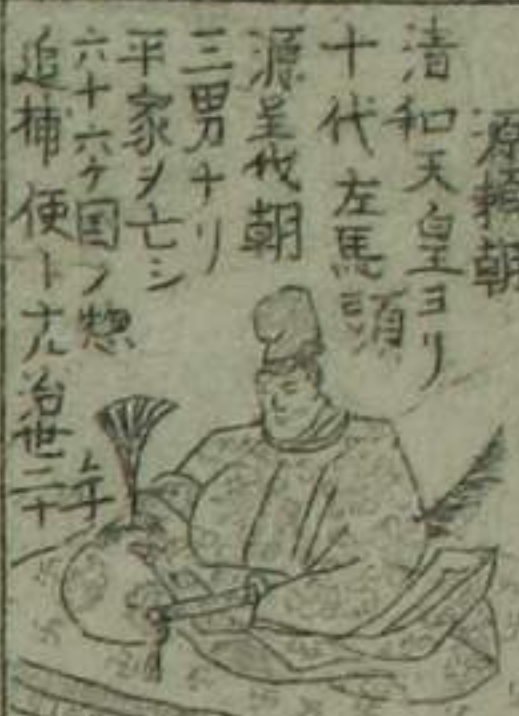 源頼朝
清和天皇ヨリ
十代左馬頭
源呈代朝
三男ナリ
平家ヲ亡シ
六十六ケ国ノ惣
追捕使トナル治世二十
年